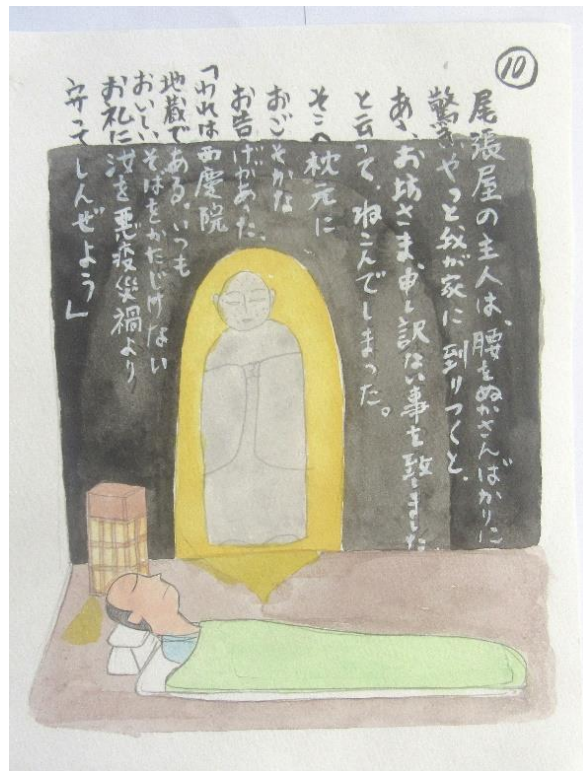 10
尾張屋の主人は、腰をぬかさんばかりに
驚き、やっと我が家に到りつくと、
あゝ、お坊さま、申し訳ない事を致しました
と云って、ねこんでしまった。
そこへ枕元に
おごそかな
お告げがあった。
「われは西慶院
地蔵である。いつも
おいしいそばをかたじけない
お礼に汝を悪疫災禍より
守ってしんぜよう」